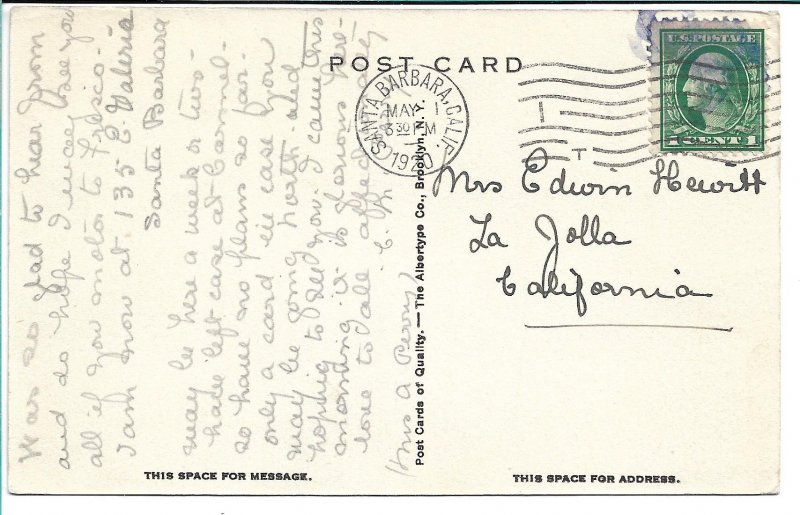 POST CARD
SANTA BARBARA, CALIF.
MAY 1
3 30 PM
1920
U.S. POSTAGE
1 CENT 1
Mrs Edwin Hewitt
La Jolla
California
Was so glad to hear from
and do hope I may see you
all if you motor to Frisco-
I am now at 135 E Valerio
Santa Barbara
may be here a week or two-
have left care at Carmel-
so have no plans so far-
only a card in case you
may be going north and
hoping to see you. I came this
morning it is glorious here-
love to all affectionately
C. P.
(Mrs A Perry)
Post Cards of Quality. — The Albertype Co., Brooklyn, N. Y.
THIS SPACE FOR MESSAGE.
THIS SPACE FOR ADDRESS.